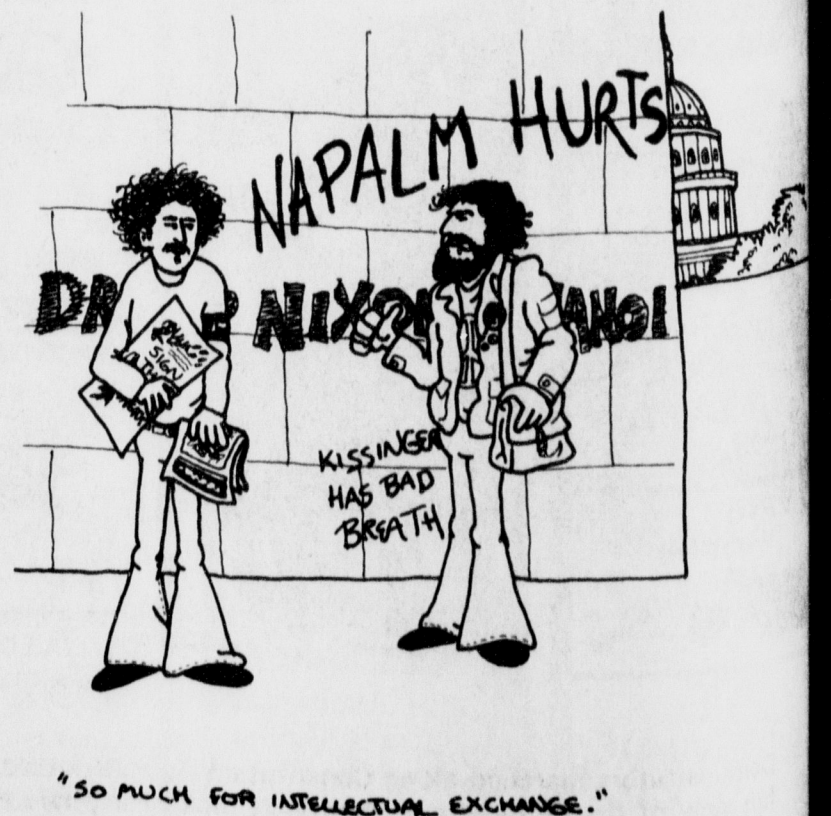 NAPALM HURTS
NIXON
SIGN
KISSINGER
HAS BAD
BREATH
"SO MUCH FOR INTELLECTUAL EXCHANGE."